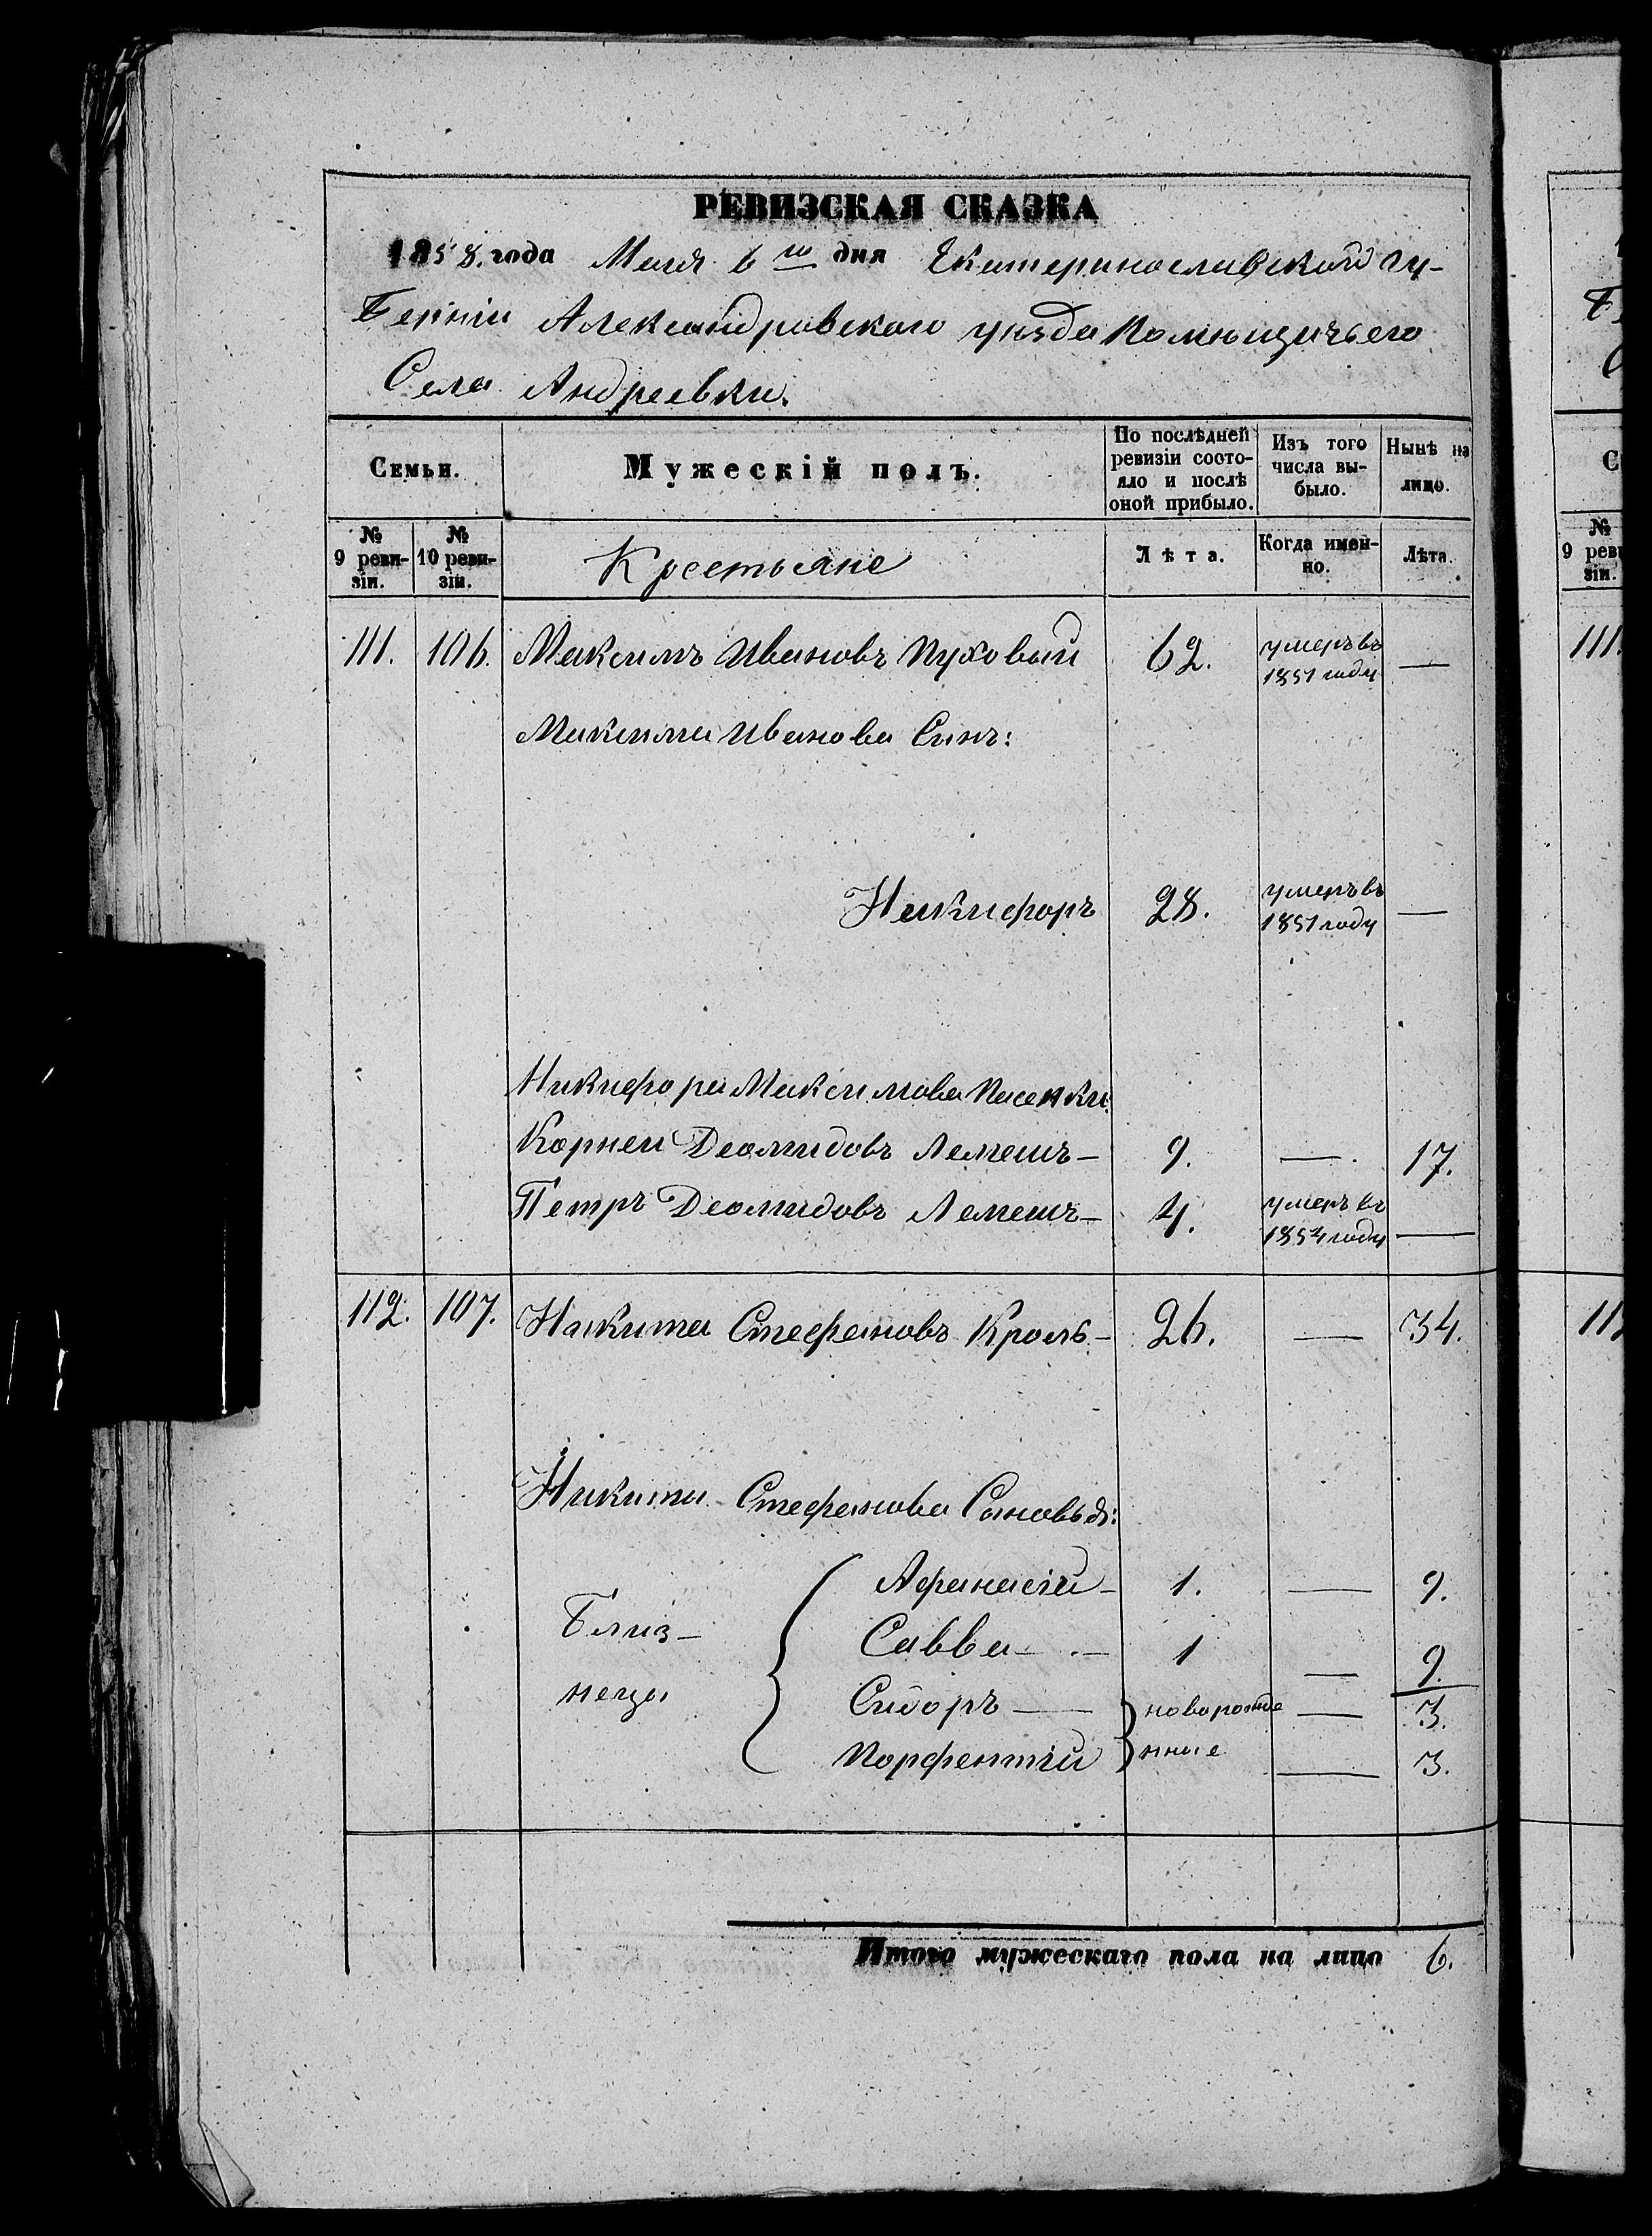 РЕВИЗСКАЯ СКАЗКА
1858. года Мая 6го дня Екатеринославской гу-
берніи Александровскаго уѣзда помѣщичьего
Села Андреевки.
Семьи. Мужескій полъ. По послѣдней ревизіи состо-яло и послѣ оной прибыло. Изъ того числа вы-было. Нынѣ на лицо.
№ 9 реви-зіи. № 10 реви-зіи. Крестьяне Лѣта. Когда имен-но. Лѣта.
111. 106. Максимъ Ивановъ Пуховый 62. умеръ въ 1851 году —
Максима Иванова Синъ:
Никифоръ 28. умеръ въ 1851 году —
Никифора Максимова Пасенки:
Корней Деомидовъ Лемешъ — 9. — 17.
Петръ Деомидовъ Лемешъ — 4. умеръ въ 1854 году —
112. 107. Никита Стефановъ Кроль — 26. — 34.
Никити Стефанова Сыновья:
Близ-
нецы
Афанасій — 1. — 9.
Савва — 1 — 9.
Сидоръ — новорожде — 3.
Порфентій нные — 3.
Итого мужескаго пола на лицо 6.
С
№
9 реви
зіи.
111.
11